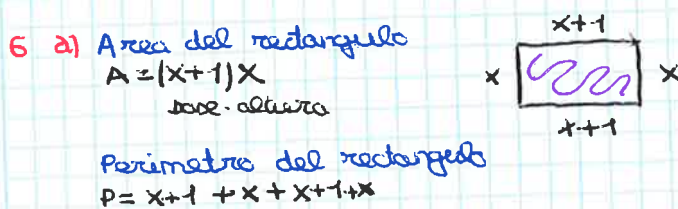 6 a) Area del rectangulo
A = (x+1) x
base · altura
x+1
x
x
x+1
Perimetro del rectangulo
P = x+1 + x + x+1+x